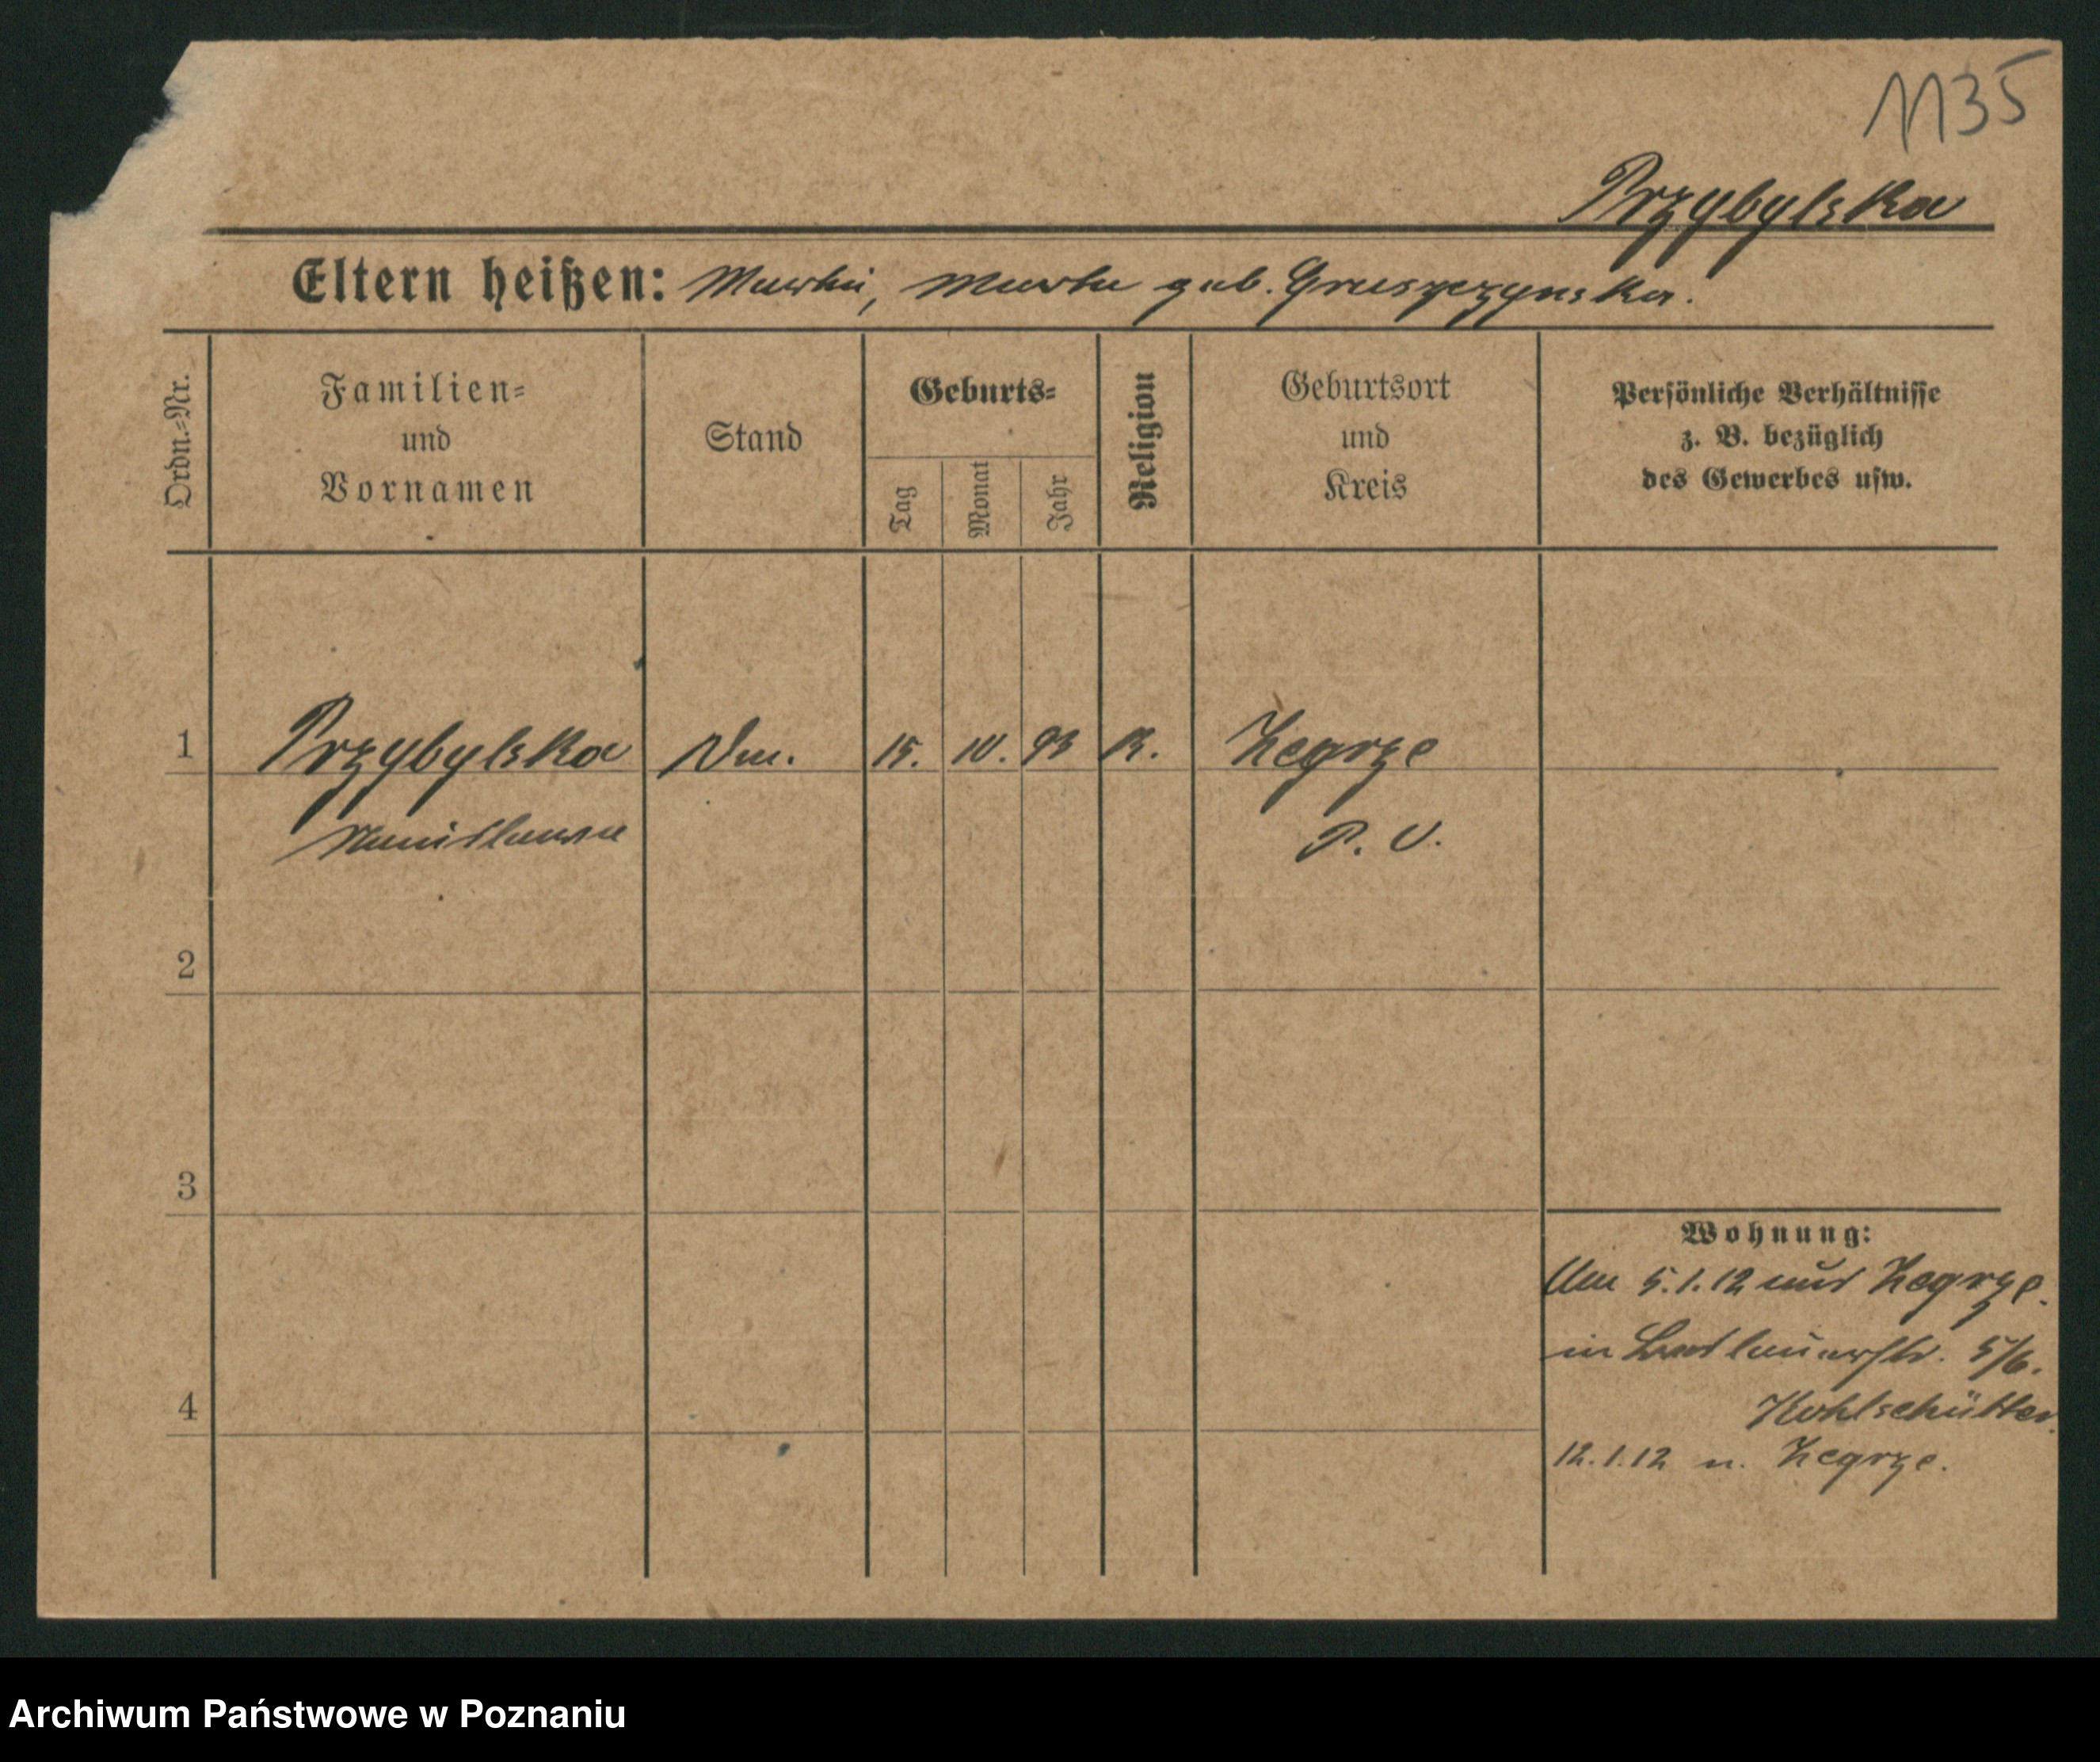 1135
Przybylska
Eltern heißen: Martin, Martha geb. Gruszczynska.
Ordn.=Nr.
Familien=
und
Vornamen
Stand
Geburts=
Tag
Monat
Jahr
Religion
Geburtsort
und
Kreis
Persönliche Verhältnisse
z. B. bezüglich
des Gewerbes usw.
1 Przybylska 15. 10. 93 K. Zegrze
Stanislawa P. O.
2
3
Wohnung:
5.1.12 aus Zegrze.
in 5/6.
4
Kohlschütter.
12.1.12 n. Zegrze.
Archiwum Państwowe w Poznaniu